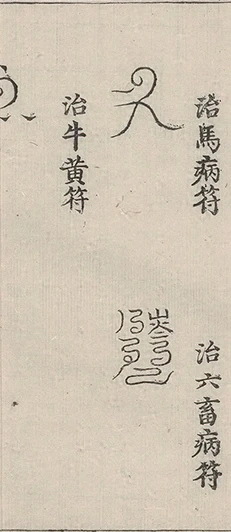 治馬病符
治六畜病符
治牛黃符